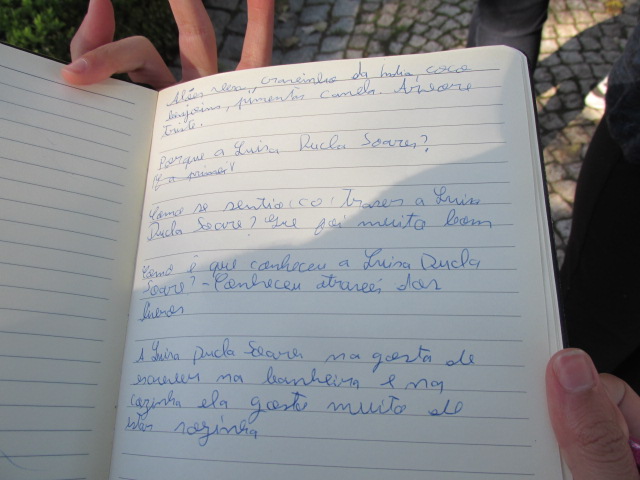 cravinho da India, coco
pimenta canela. Arvore
triste.
Porque a Luisa Ducla Soares?
É a primeir
Como se sentio (co) trazer a Luisa
Ducla Soare? Que foi muito bom
Como é que conheceu a Luisa Ducla
Soare? - Conheceu atravei dos
livros
A Luisa Ducla Soares na gosta de
escrever na banheira e na
cozinha ela gosta muito de
estar sozinha